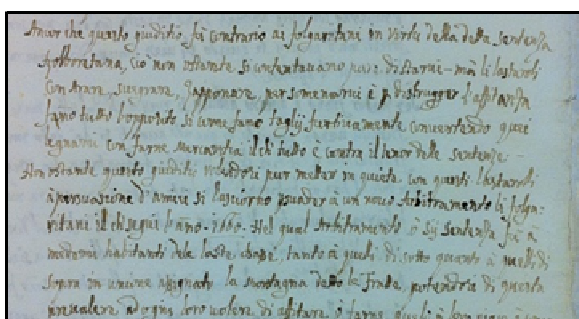 Ancor che questo giuditio fù contrario ai folgaritani in virtù della detta sentenza
ciò non ostante si contentavano pure di starvi = mà li lastaroli
con trare, svegrare, per somenarvi è p distrugger
fano tutto l'opposto si come fano taglij furtivamente convertendo quei
legnami con farne mercantia il chè tutto è contra il tenor delle sentenze
Non ostante questo giuditio volendosi pur metter in quiete con questi lastaroli
à persuasione d'amici si lasciorno psuader à un novo Arbitramento li folga=
ritani il chè seguì l'anno 1660. Nel qual Arbitramento ò sij sentenza fù à
medemi habitanti dele laste basse, tanto à queli di sotto quanto à quelli di
sopra in unione assegnato la montagna detta la Frata potendosi di questa
prevalere ad ogni loro volere di affitare ò farne